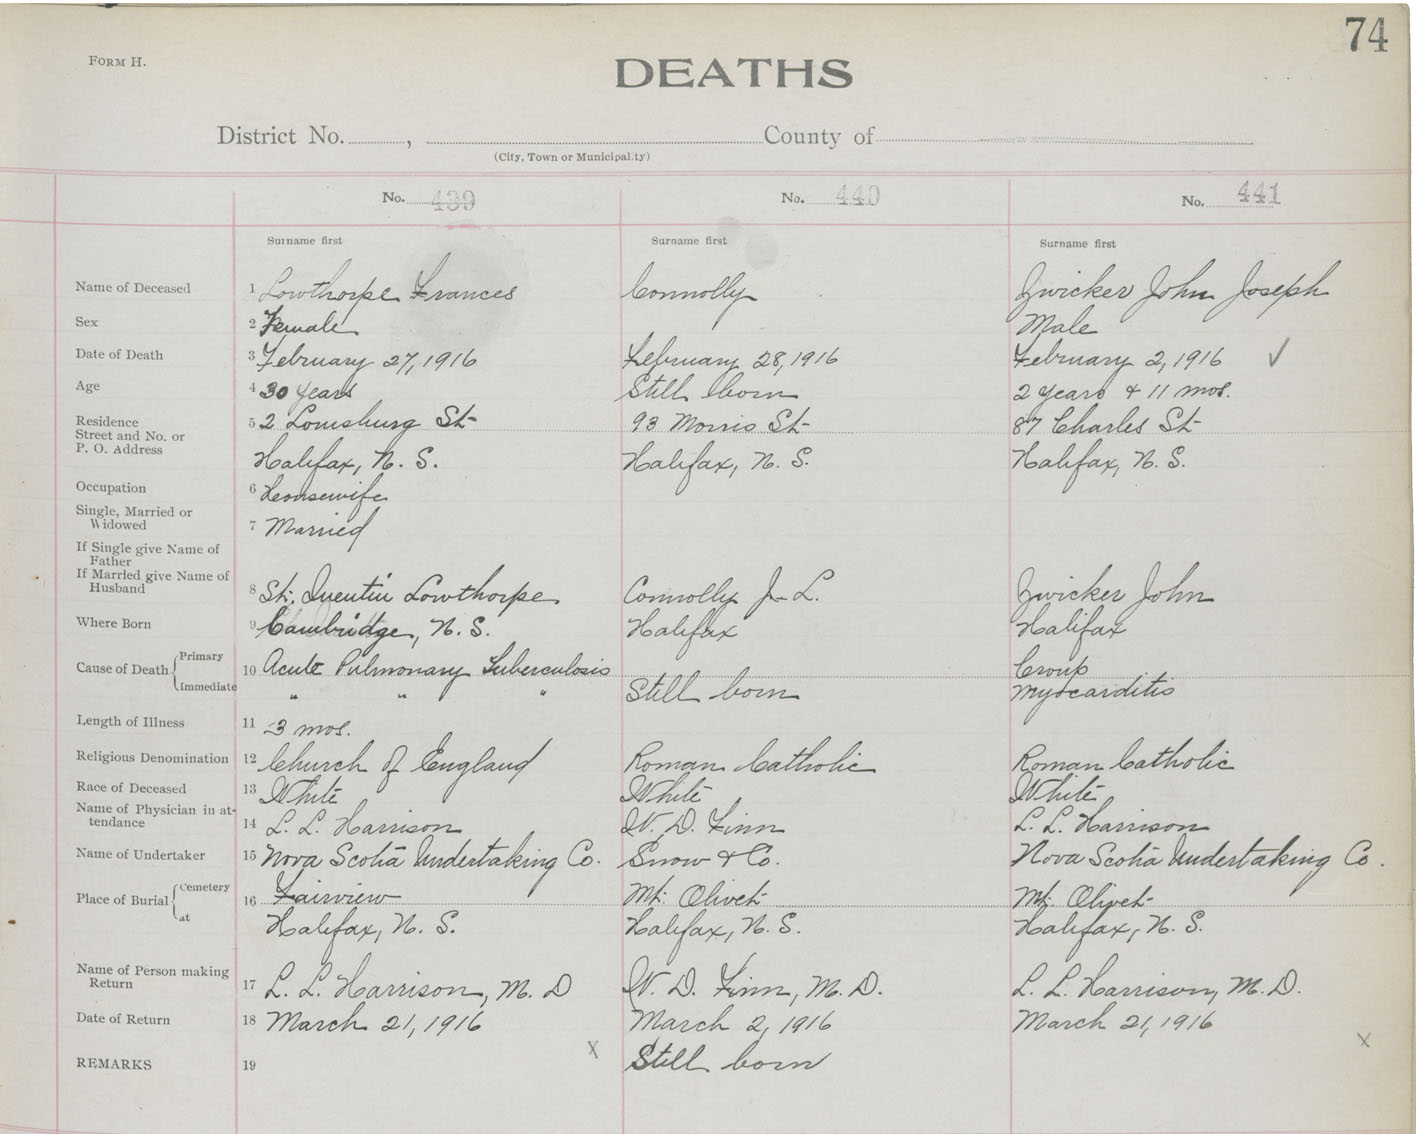 74
FORM H.
DEATHS
District No. , County of
(City, Town or Municipality)
No. 439 No. 440 No. 441
Surname first Surname first Surname first
Name of Deceased 1 Lowthorpe Frances Connolly Zwicker John Joseph
Sex 2 Female Male
Date of Death 3 February 27, 1916 February 28, 1916 February 2, 1916 ✓
Age 4 30 years Still born 2 years & 11 mos.
Residence 5 2 Louisburg St 93 Morris St 87 Charles St
Street and No. or
P. O. Address Halifax, N. S. Halifax, N. S. Halifax, N. S.
Occupation 6 Housewife
Single, Married or
Widowed 7 Married
If Single give Name of
Father
If Married give Name of
Husband 8 St. Quentin Lowthorpe Connolly J. L. Zwicker John
Where Born 9 Cambridge, N. S. Halifax Halifax
Cause of Death Primary 10 Acute Pulmonary Tuberculosis Croup
Immediate " " " Still born Myocarditis
Length of Illness 11 3 mos.
Religious Denomination 12 Church of England Roman Catholic Roman Catholic
Race of Deceased 13 White White White
Name of Physician in at-
tendance 14 L. L. Harrison W. D. Finn L. L. Harrison
Name of Undertaker 15 Nova Scotia Undertaking Co. Snow & Co. Nova Scotia Undertaking Co.
Place of Burial Cemetery 16 Fairview Mt. Olivet Mt. Olivet
at Halifax, N. S. Halifax, N. S. Halifax, N. S.
Name of Person making
Return 17 L. L. Harrison, M. D W. D. Finn, M. D. L. L. Harrison, M. D.
Date of Return 18 March 21, 1916 March 2, 1916 March 21, 1916
X X
REMARKS 19 Still born